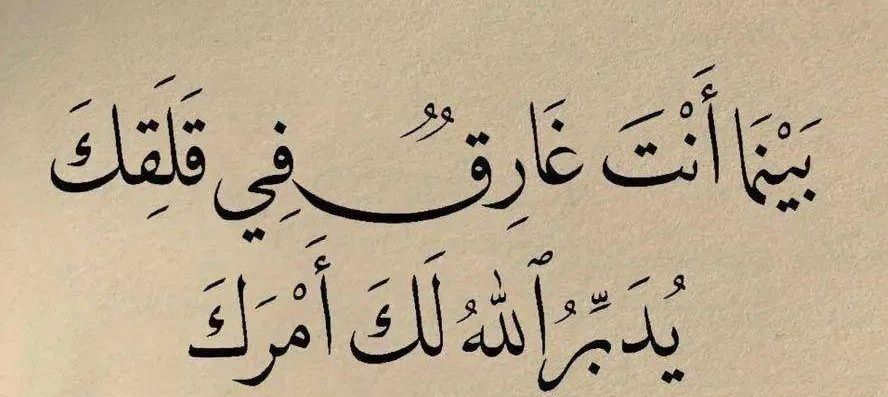 بَيْنَمَا أَنْتَ غَارِقٌ فِي قَلَقِكَ
يُدَبِّرُ ٱللهُ لَكَ أَمْرَكَ